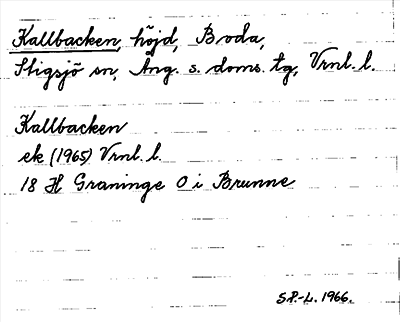 Kallbacken, höjd, Boda,
Stigsjö sn, Ång. s. doms. tg, Vrnl. l.
Kallbacken
ek (1965) Vrnl. l.
18 H Graninge O i Brunne
S.P.-L. 1966.